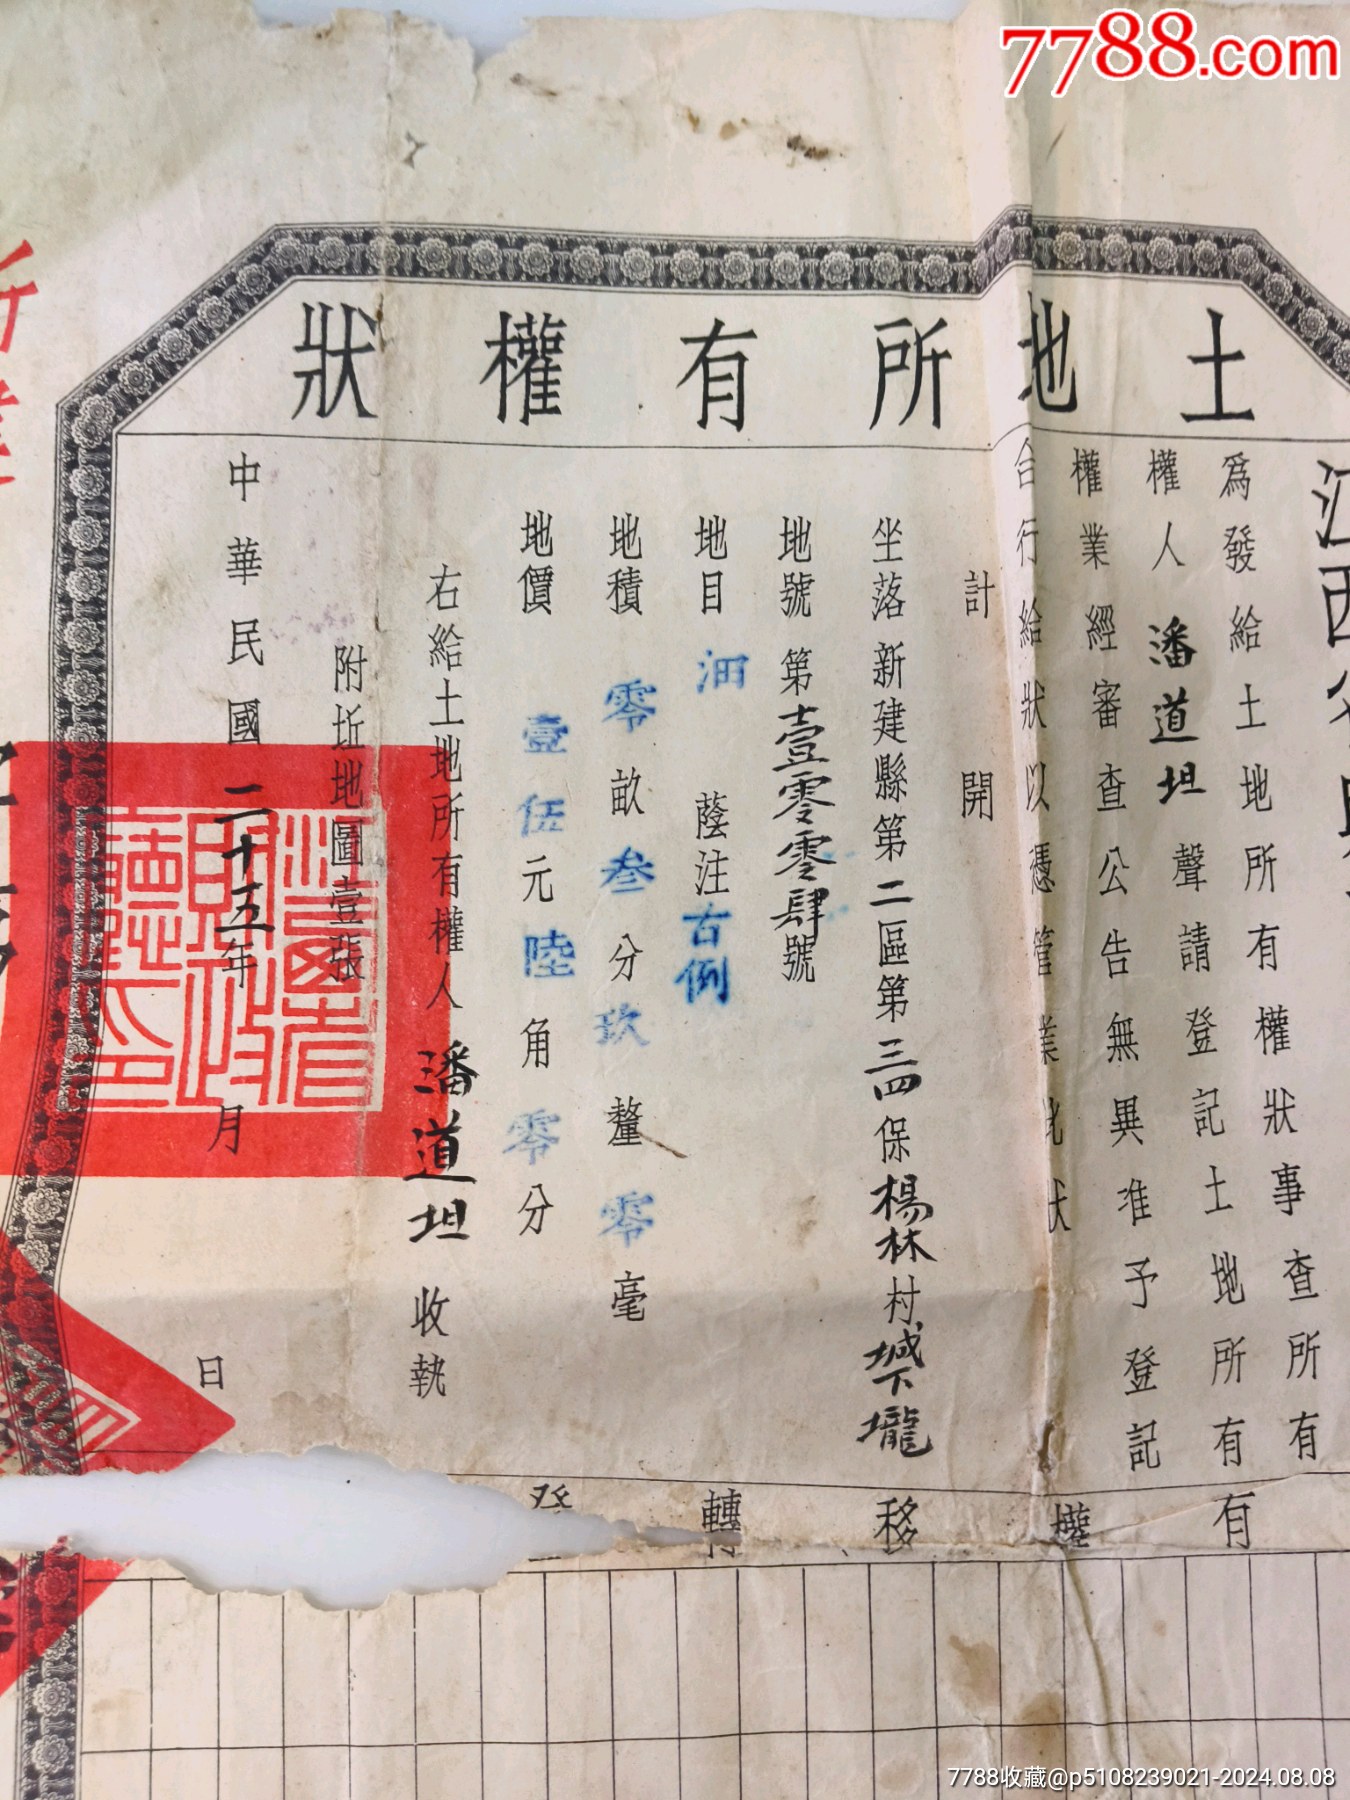 7788.com
土地所有權狀
江西
爲發給土地所有權狀事查所有
權人潘道坦聲請登記土地所有
權業經審查公告無異准予登記
合行給狀以憑管業此狀
計開
坐落新建縣第二區第三四保楊林村城下壠
地號第壹零零肆號
地目 蔭注古例
地積零畝叁分玖釐零毫
地價壹伍元陸角零分
右給土地所有權人潘道坦收執
附坵地圖壹張
中華民國二十五年月日
江西省財政廳印
有權移轉
7788收藏@p5108239021-2024.08.08